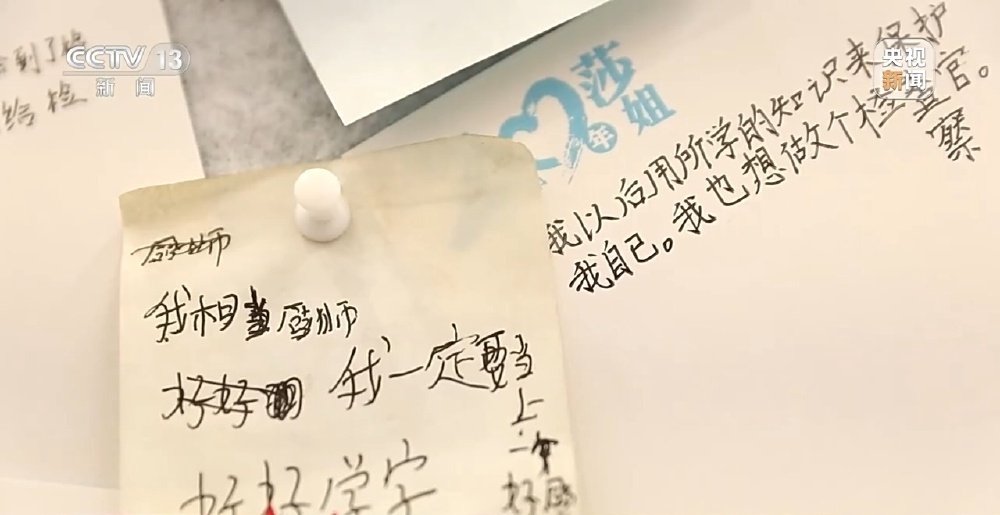 CCTV 13
新闻
央视
新闻
到了
给检
莎姐
年
我以后用所学的知识来保护
我自己。我也想做个检查官。
察
厨师
我相当厨师
好好
我一定要当
上一个
好厨
好好学字